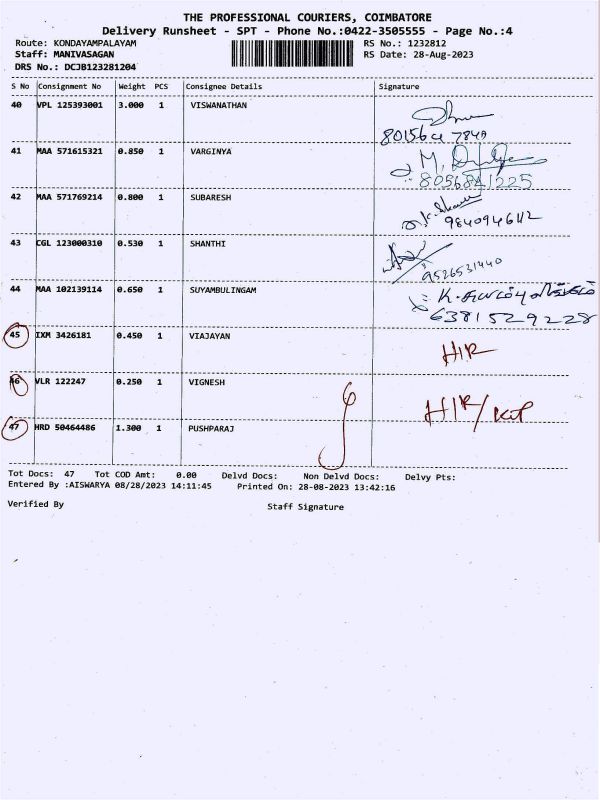 THE PROFESSIONAL COURIERS, COIMBATORE
Delivery Runsheet - SPT - Phone No.:0422-3505555 - Page No.:4
Route: KONDAYAMPALAYAM RS No.: 1232812
Staff: MANIVASAGAN RS Date: 28-Aug-2023
DRS No.: DCJB123281204
S No Consignment No Weight PCS Consignee Details Signature
40 VPL 125393001 3.000 1 VISWANATHAN
41 MAA 571615321 0.850 1 VARGINYA
8056841225
42 MAA 571769214 0.800 1 SUBARESH
43 CGL 123000310 0.530 1 SHANTHI
9526531440
44 MAA 102139114 0.650 1 SUYAMBULINGAM
6381529228
45 IXM 3426181 0.450 1 VIAJAYAN
46 VLR 122247 0.250 1 VIGNESH
47 HRD 50464486 1.300 1 PUSHPARAJ
Tot Docs: 47 Tot COD Amt: 0.00 Delvd Docs: Non Delvd Docs: Delvy Pts:
Entered By :AISWARYA 08/28/2023 14:11:45 Printed On: 28-08-2023 13:42:16
Verified By Staff Signature